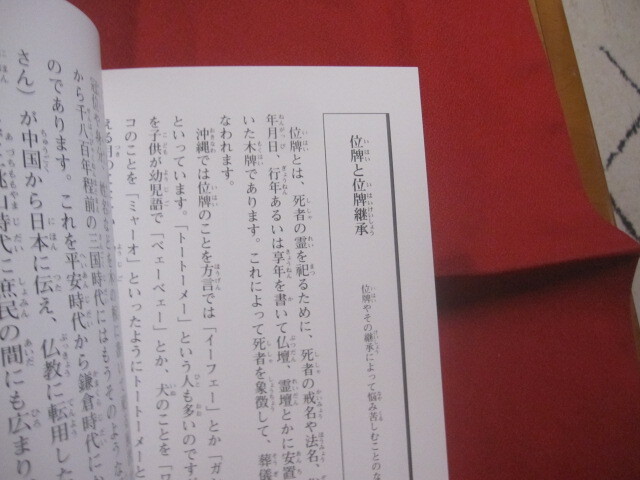 位牌と位牌継承
位牌やその継承によって悩み苦しむことのな
位牌とは、死者の霊を祀るために、死者の戒名や法名、
年月日、行年あるいは享年を書いて仏壇、霊壇とかに安置
いた木牌であります。これによって死者を象徴して、葬儀
なわれます。
沖縄では位牌のことを方言では「イーフェー」とか「ガ
といっています。「トートーメー」という人も多いのですが
を子供が幼児語で「ベェーベェー」とか、犬のことを「ワ
コのことを「ミャーオ」といったようにトートーメーと
から千八百年程前の三国時代にはもうそのような
のであります。これを平安時代から鎌倉時代に
さん）が中国から日本に伝え、仏教に転用した
山時代に庶民の間にも広まり